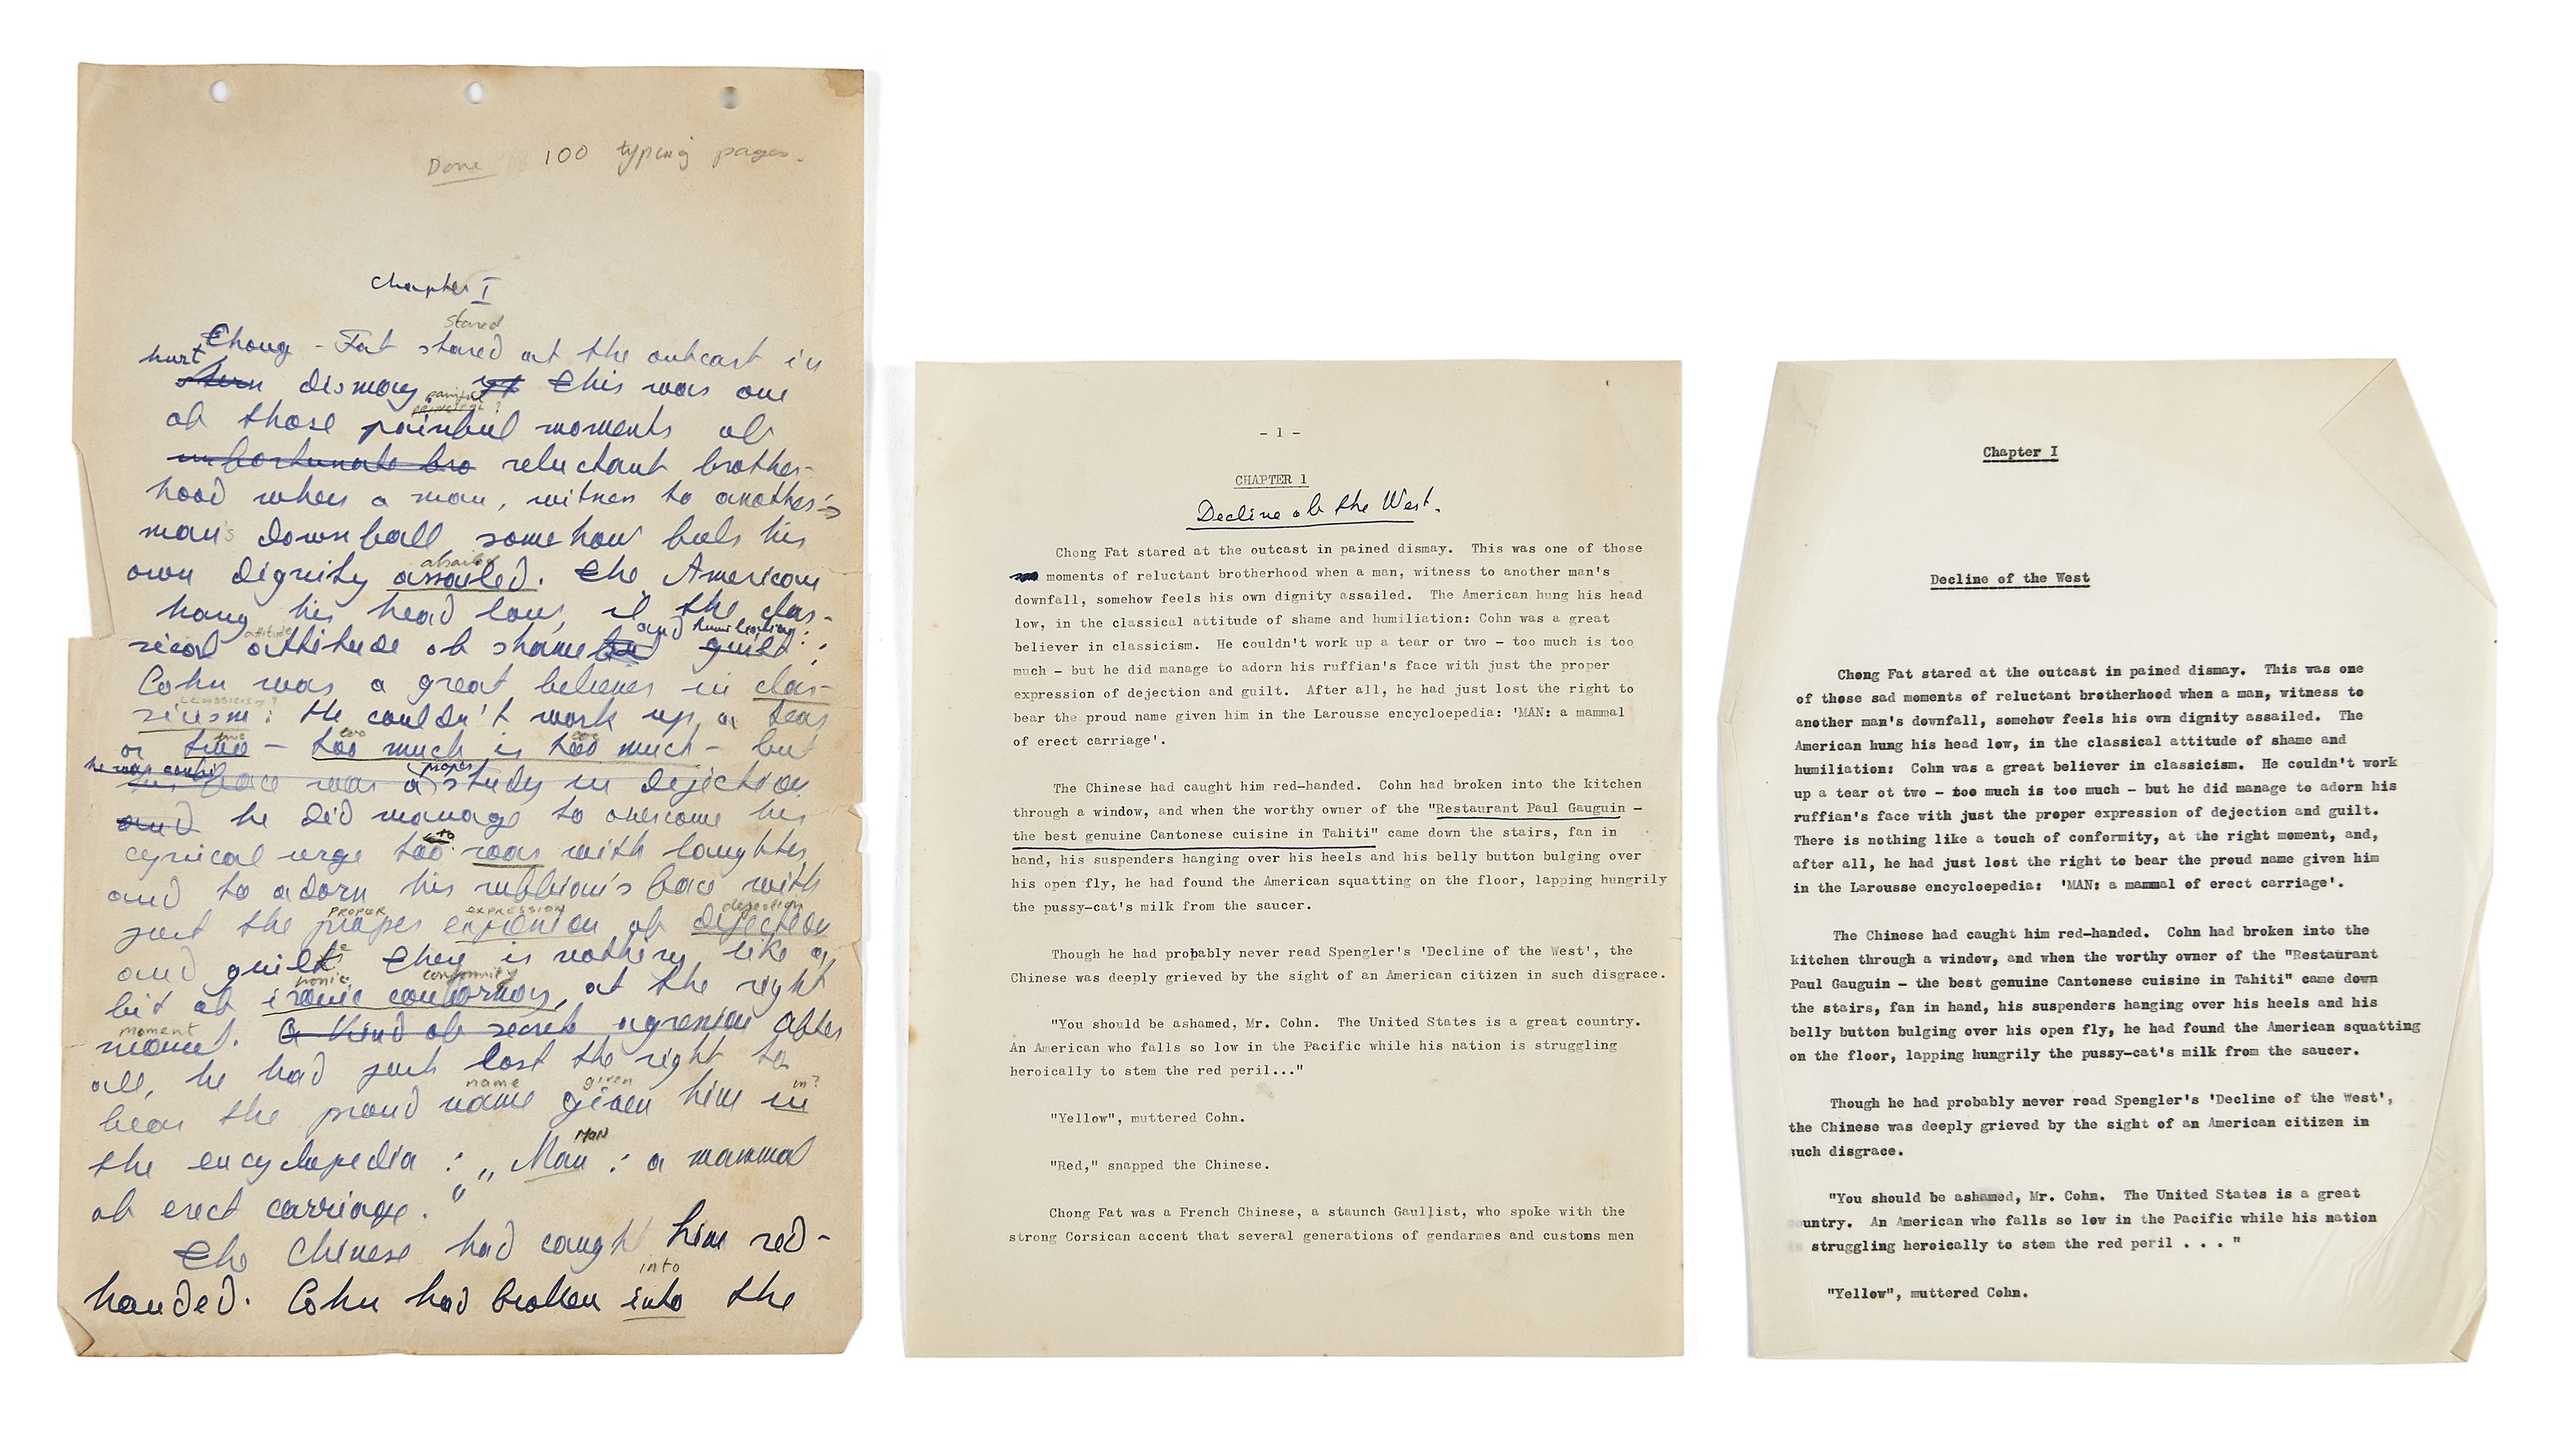 Done 100 typing pages.
Chapter I
stared
Chong-Fat stared at the outcast in
hurt
dismay This was one
painful
of those painful moments of
unfortunate bro reluctant brother-
hood when a man, witness to another's
man's downfall, somehow feels his
assailed
own dignity assailed. The American
hang his head low, in the clas-
attitude and humiliation:
sical attitude of shame guilt;
Cohn was a great believer in clas-
classicism?
sicism: He couldn't work up a tear
two too too
or two – too much is too much – but
he was
proper
his face was a study in dejection
and he did manage to overcome his
to
cynical urge too roar with laughter
and to adorn his ruffian's face with
PROPER EXPRESSION dejection
just the proper expression of dejection
and guilt There is nothing like a
ironic conformity
bit of ironic conformity, at the right
moment
moment. a kind of secret agression After
all, he had just lost the right to
name given in?
bear the proud name given him in
MAN
the encyclopedia : „Man : a mammal
of erect carriage."
The Chinese had caught him red-
into
handed. Cohn had broken into the
- 1 -
CHAPTER 1
Decline of the West.
Chong Fat stared at the outcast in pained dismay. This was one of those
moments of reluctant brotherhood when a man, witness to another man's
downfall, somehow feels his own dignity assailed. The American hung his head
low, in the classical attitude of shame and humiliation: Cohn was a great
believer in classicism. He couldn't work up a tear or two - too much is too
much - but he did manage to adorn his ruffian's face with just the proper
expression of dejection and guilt. After all, he had just lost the right to
bear the proud name given him in the Larousse encycloepedia: 'MAN: a mammal
of erect carriage'.
The Chinese had caught him red-handed. Cohn had broken into the kitchen
through a window, and when the worthy owner of the "Restaurant Paul Gauguin -
the best genuine Cantonese cuisine in Tahiti" came down the stairs, fan in
hand, his suspenders hanging over his heels and his belly button bulging over
his open fly, he had found the American squatting on the floor, lapping hungrily
the pussy-cat's milk from the saucer.
Though he had probably never read Spengler's 'Decline of the West', the
Chinese was deeply grieved by the sight of an American citizen in such disgrace.
"You should be ashamed, Mr. Cohn. The United States is a great country.
An American who falls so low in the Pacific while his nation is struggling
heroically to stem the red peril..."
"Yellow", muttered Cohn.
"Red," snapped the Chinese.
Chong Fat was a French Chinese, a staunch Gaullist, who spoke with the
strong Corsican accent that several generations of gendarmes and customs men
Chapter I
Decline of the West
Chong Fat stared at the outcast in pained dismay. This was one
of those sad moments of reluctant brotherhood when a man, witness to
another man's downfall, somehow feels his own dignity assailed. The
American hung his head low, in the classical attitude of shame and
humiliation: Cohn was a great believer in classicism. He couldn't work
up a tear ot two - too much is too much - but he did manage to adorn his
ruffian's face with just the proper expression of dejection and guilt.
There is nothing like a touch of conformity, at the right moment, and,
after all, he had just lost the right to bear the proud name given him
in the Larousse encycloepedia: 'MAN: a mammal of erect carriage'.
The Chinese had caught him red-handed. Cohn had broken into the
kitchen through a window, and when the worthy owner of the "Restaurant
Paul Gauguin - the best genuine Cantonese cuisine in Tahiti" came down
the stairs, fan in hand, his suspenders hanging over his heels and his
belly button bulging over his open fly, he had found the American squatting
on the floor, lapping hungrily the pussy-cat's milk from the saucer.
Though he had probably never read Spengler's 'Decline of the West',
the Chinese was deeply grieved by the sight of an American citizen in
such disgrace.
"You should be ashamed, Mr. Cohn. The United States is a great
country. An American who falls so low in the Pacific while his nation
is struggling heroically to stem the red peril . . . "
"Yellow", muttered Cohn.